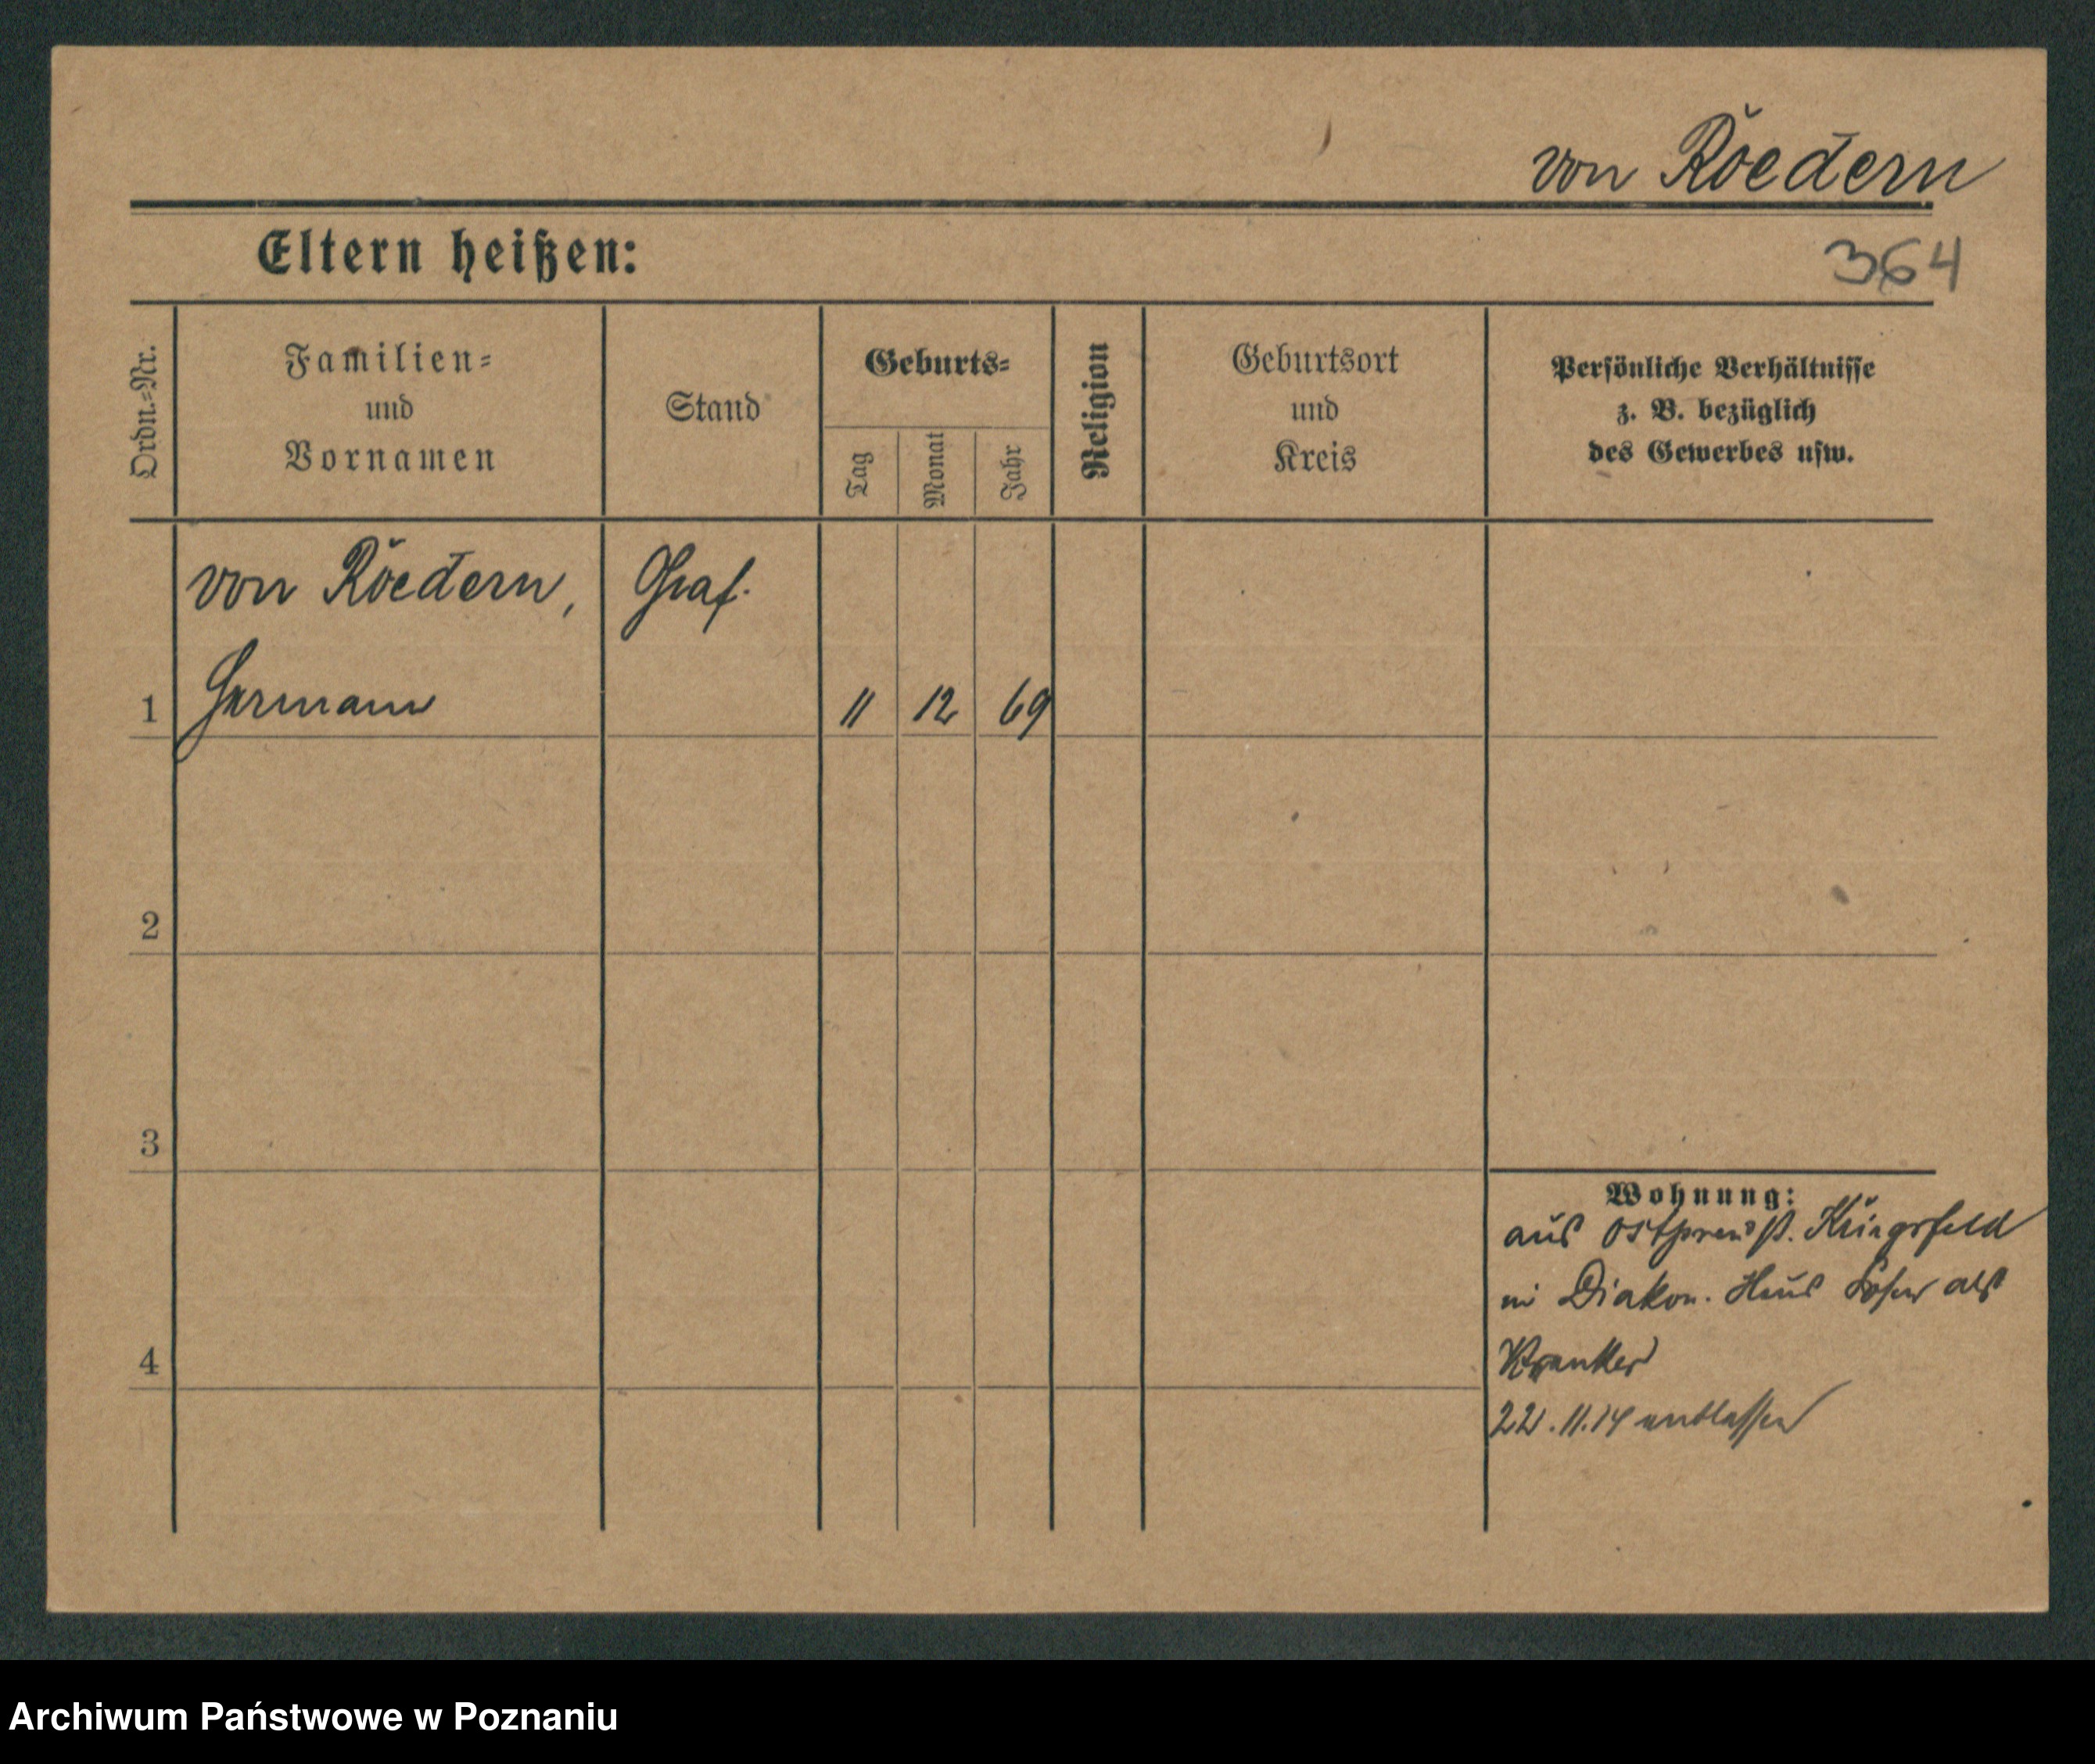 von Roedern
Eltern heißen:
364
Ordn.=Nr.
Familien=
und
Vornamen
Stand
Geburts=
Tag
Monat
Jahr
Religion
Geburtsort
und
Kreis
Persönliche Verhältnisse
z. B. bezüglich
des Gewerbes usw.
von Roedern, Graf.
1 Hermann 11 12 69
2
3
Wohnung:
aus Ostpreuß.
in Diakon. Haus als
4 Kranker
22.11.14 entlassen
Archiwum Państwowe w Poznaniu